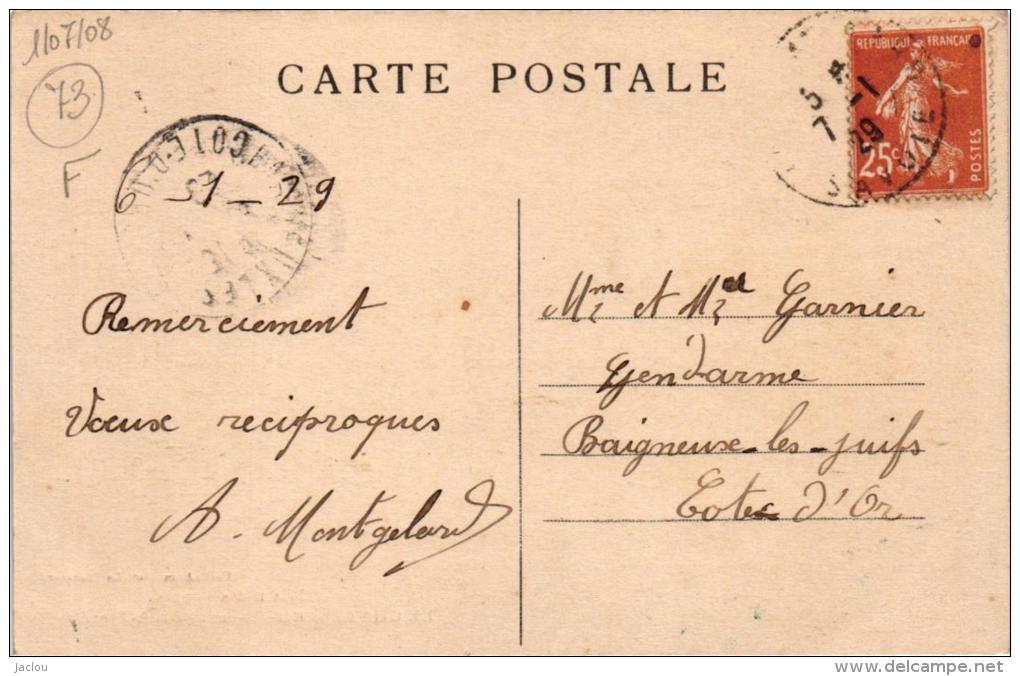 1/07/08
73
F
CARTE POSTALE
REPUBLIQUE FRANÇAISE
25c
POSTES
7 -1
29
SAVOIE
COTE D
6 - 1 - 29
Remerciement
Vœux reciproques
A. Montgelard
Mme et Mr Garnier
Gendarme
Baigneux-les-juifs
Cote d'Or
Jaclou
www.delcampe.net